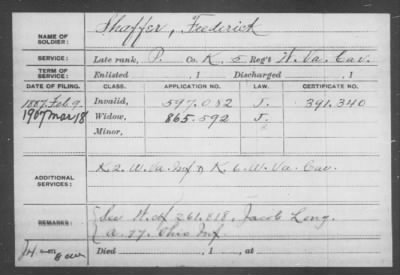 NAME OF SOLDIER: Shaffer, Frederick
SERVICE: Late rank, P. Co. K. 5 Reg't W. Va. Cav.
TERM OF SERVICE: Enlisted , 1 Discharged , 1
DATE OF FILING. CLASS. APPLICATION NO. LAW. CERTIFICATE NO.
1887. Feb. 9. Invalid, 597.082 J. 391.340
1907 Mar 18 Widow, 865.592 J.
Minor,
ADDITIONAL SERVICES: K. 2. W. Va. Inf & K. 6. W. Va. Cav.
REMARKS: See W. of 261.818, Jacob Long.
a. 77. Ohio Inf.
Died , 1 , at